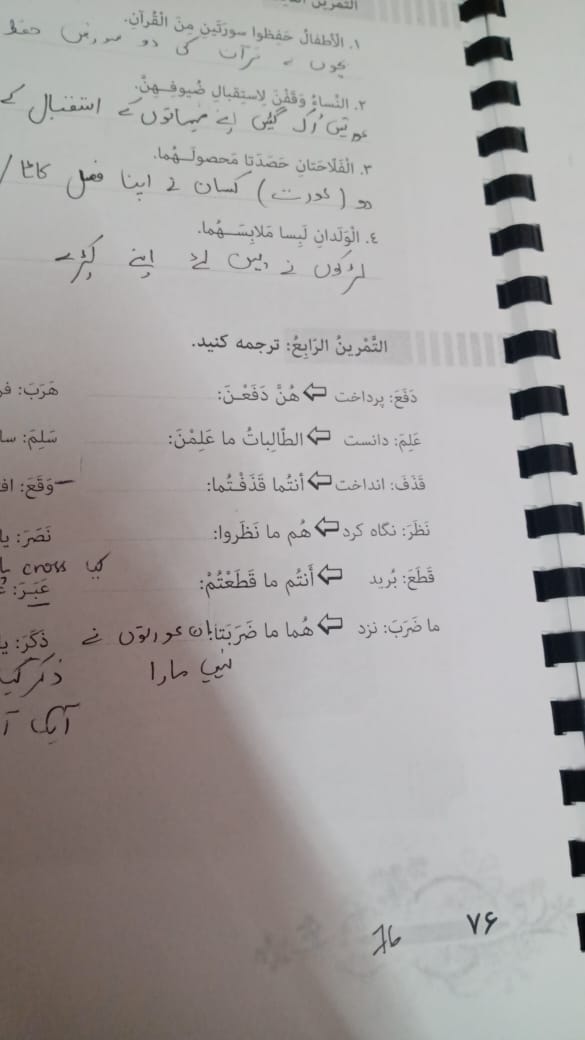 التمرین
۱. الْأَطفالُ حَفِظوا سورَتَینِ مِنَ الْقُرآنِ.
بچوں نے قرآن کی دو سورتیں حفظ
۲. النِّساءُ وَقَفْنَ لِاستِقبالِ ضُیوفِـهِنَّ.
عورتیں رک گئیں اپنے مہمانوں کے استقبال کے
۳. الْفَلّاحَتانِ حَصَدَتا مَحصولَـهُما.
دو (عورت) کسان نے اپنا فصل کاٹا /
٤. الْوَلَدانِ لَبِسا مَلابِسَـهُما.
لڑکوں نے پہن لئے اپنے کپڑے
التَّمْرینُ الرّابِعُ: ترجمه کنید.
دَفَعَ: پرداخت ⇦ هُنَّ دَفَعْـنَ: هَرَبَ: فر
عَلِمَ: دانست ⇦ الطّالِباتُ ما عَلِمْنَ: سَلِمَ: سا
قَذَفَ: انداخت ⇦ أنتُما قَذَفْـتُما: وَقَعَ: اف
نَظَرَ: نگاه کرد ⇦ هُم ما نَظَروا: نَصَرَ: یا
cross کیا
قَطَعَ: بُرید ⇦ أَنتُم ما قَطَعْتُمْ: عَبَـرَ:
ما ضَرَبَ: نزد ⇦ هُما ما ضَرَبَتا: ان عورتوں نے ذَکَرَ: یا
نہیں مارا ذکر کیا
آپک آ
76 ۷۶